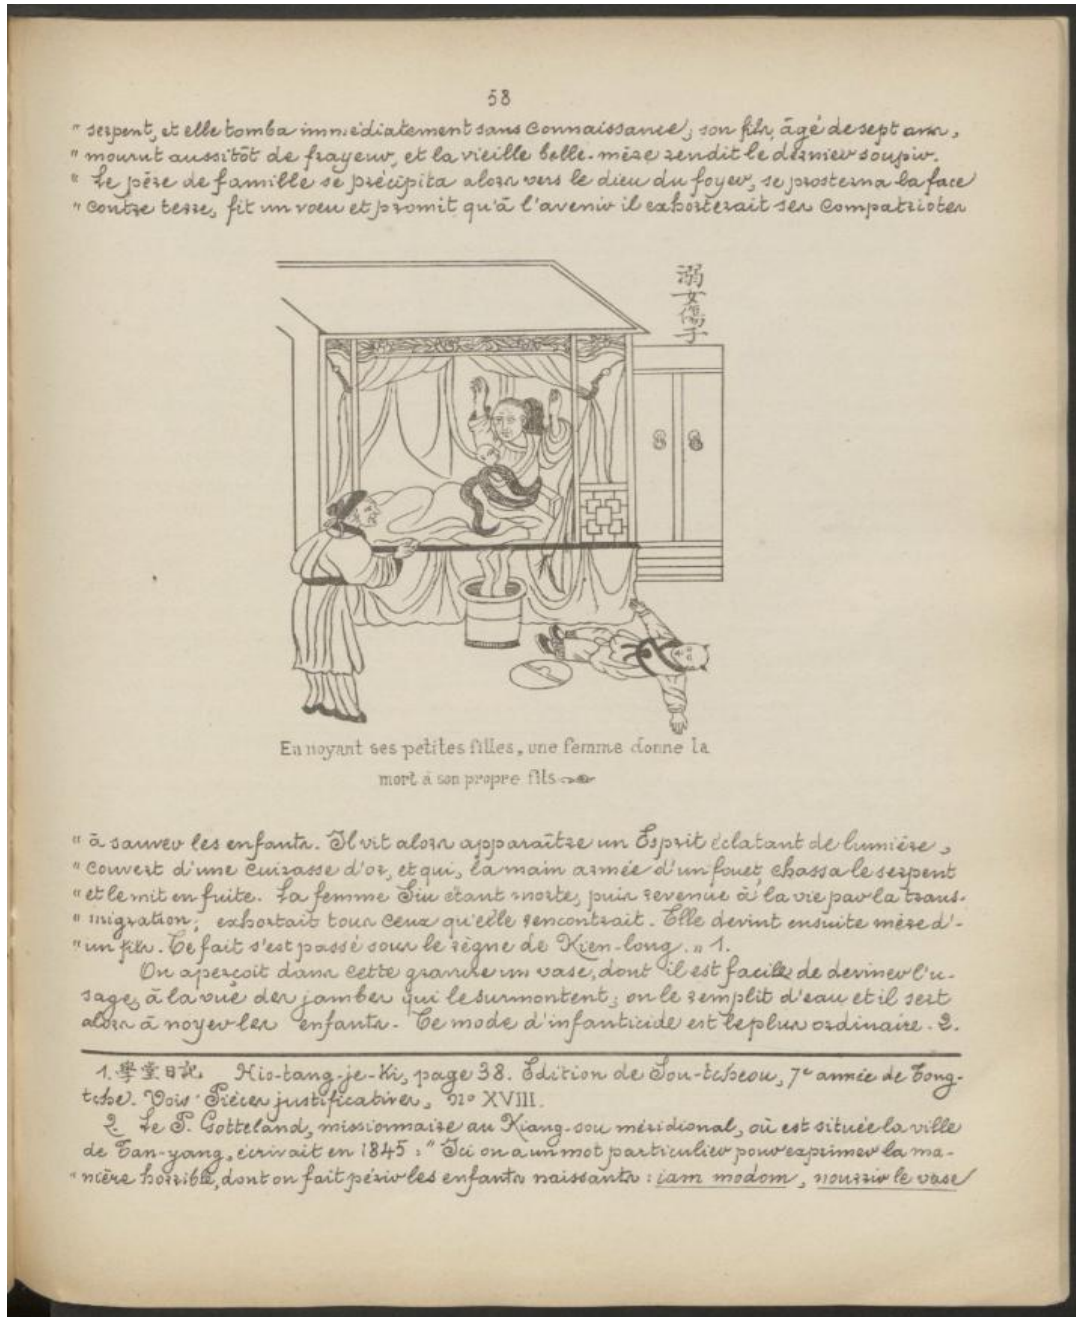 58
" serpent, et elle tomba immédiatement sans connaissance; son fils, âgé de sept ans,
" mourut aussitôt de frayeur, et la vieille belle-mère rendit le dernier soupir.
" Le père de famille se précipita alors vers le dieu du foyer, se prosterna la face
" contre terre, fit un vœu et promit qu'à l'avenir il exhorterait ses compatriotes
溺女傷子
En noyant ses petites filles, une femme donne la
mort à son propre fils
" à sauver les enfants. Il vit alors apparaître un Esprit éclatant de lumière,
" couvert d'une cuirasse d'or, et qui, la main armée d'un fouet, chassa le serpent
" et le mit en fuite. La femme Siu étant morte, puis revenue à la vie par la trans-
" migration, exhortait tous ceux qu'elle rencontrait. Elle devint ensuite mère d'-
" un fils. Ce fait s'est passé sous le règne de Kien-long. " 1.
On aperçoit dans cette gravure un vase, dont il est facile de deviner l'u-
sage, à la vue des jambes qui le surmontent; on le remplit d'eau et il sert
alors à noyer les enfants. Ce mode d'infanticide est le plus ordinaire. 2.
1. 學堂日記 Hio-tang-je-Ki, page 38. Edition de Sou-tcheou, 7e année de Tong-
tche. Voir Pièces justificatives, No XVIII.
2. Le P. Gotteland, missionnaire au Kiang-sou méridional, où est située la ville
de Tan-yang, écrivait en 1845 : " Ici on a un mot particulier pour exprimer la ma-
" nière horrible, dont on fait périr les enfants naissants : iam modom, nourrir le vase